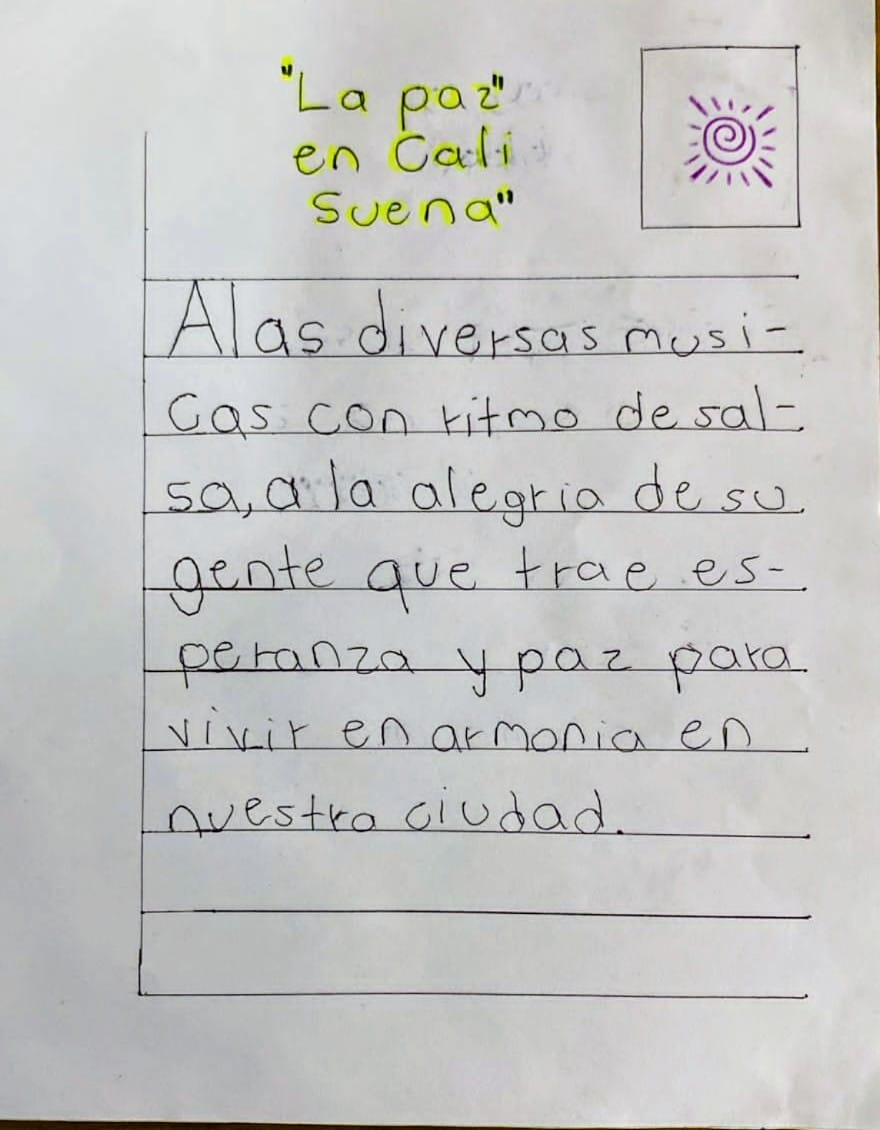 "La paz"
en Cali
Suena"
A las diversas musi-
cas con ritmo de sal-
sa, a la alegria de su
gente que trae es-
peranza y paz para
vivir en armonia en
nuestra ciudad.